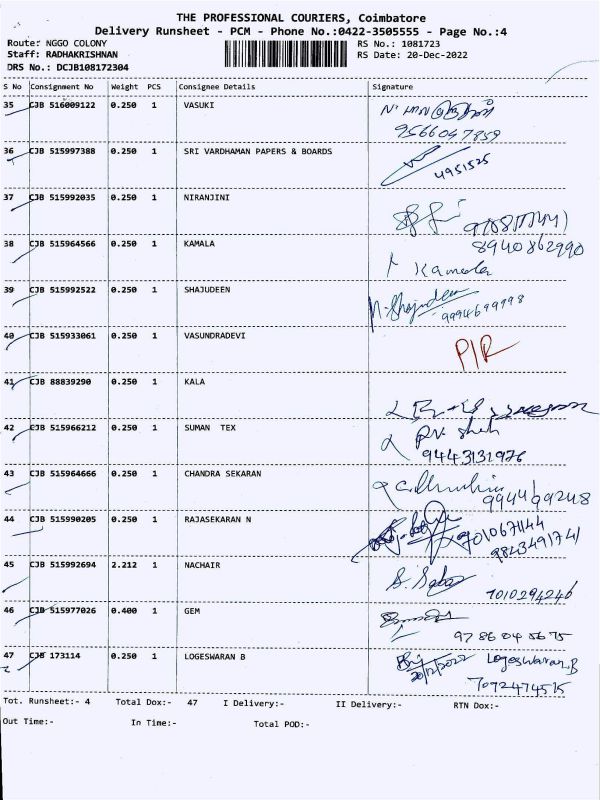 THE PROFESSIONAL COURIERS, Coimbatore
Delivery Runsheet - PCM - Phone No.:0422-3505555 - Page No.:4
Route: NGGO COLONY RS No.: 1081723
Staff: RADHAKRISHNAN RS Date: 20-Dec-2022
DRS No.: DCJB108172304
S No Consignment No Weight PCS Consignee Details Signature
35 CJB 516009122 0.250 1 VASUKI
9566047859
36 CJB 515997388 0.250 1 SRI VARDHAMAN PAPERS & BOARDS
4951525
37 CJB 515992035 0.250 1 NIRANJINI
38 CJB 515964566 0.250 1 KAMALA 8940862990
Kamala
39 CJB 515992522 0.250 1 SHAJUDEEN N. Shajudeen
9994699998
40 CJB 515933061 0.250 1 VASUNDRADEVI
P/R
41 CJB 88839290 0.250 1 KALA
42 CJB 515966212 0.250 1 SUMAN TEX P.V. Shah
9443131976
43 CJB 515964666 0.250 1 CHANDRA SEKARAN
9944699248
44 CJB 515990205 0.250 1 RAJASEKARAN N
9843491741
45 CJB 515992694 2.212 1 NACHAIR
7010294246
46 CJB 515977026 0.400 1 GEM
9786045675
47 CJB 173114 0.250 1 LOGESWARAN B 20/12/2022 Logeswaran.B
7092474515
Tot. Runsheet:- 4 Total Dox:- 47 I Delivery:- II Delivery:- RTN Dox:-
Out Time:- In Time:- Total POD:-